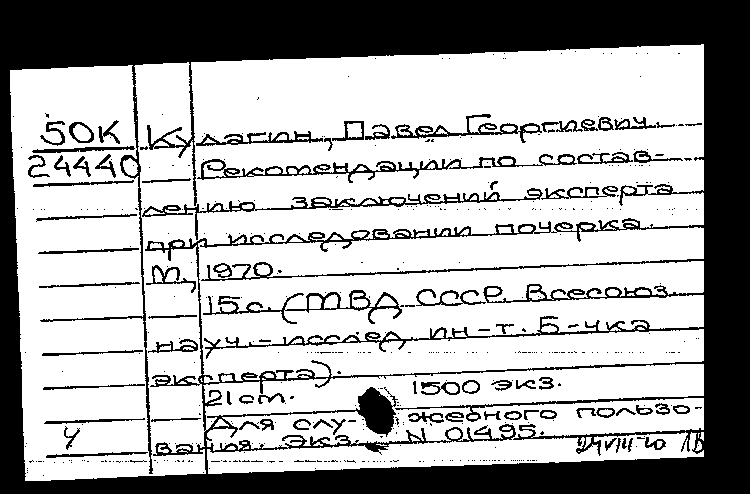 50К Кулагин, Павел Георгиевич.
24440 Рекомендации по состав-
лению заключений эксперта
при исследовании почерка.
М., 1970.
15с. (МВД СССР. Всесоюз.
науч.-исслед. ин-т. Б-чка
эксперта).
21 см. 1500 экз.
(Для слу- жебного пользо-
ч вания. Экз. N 01495.